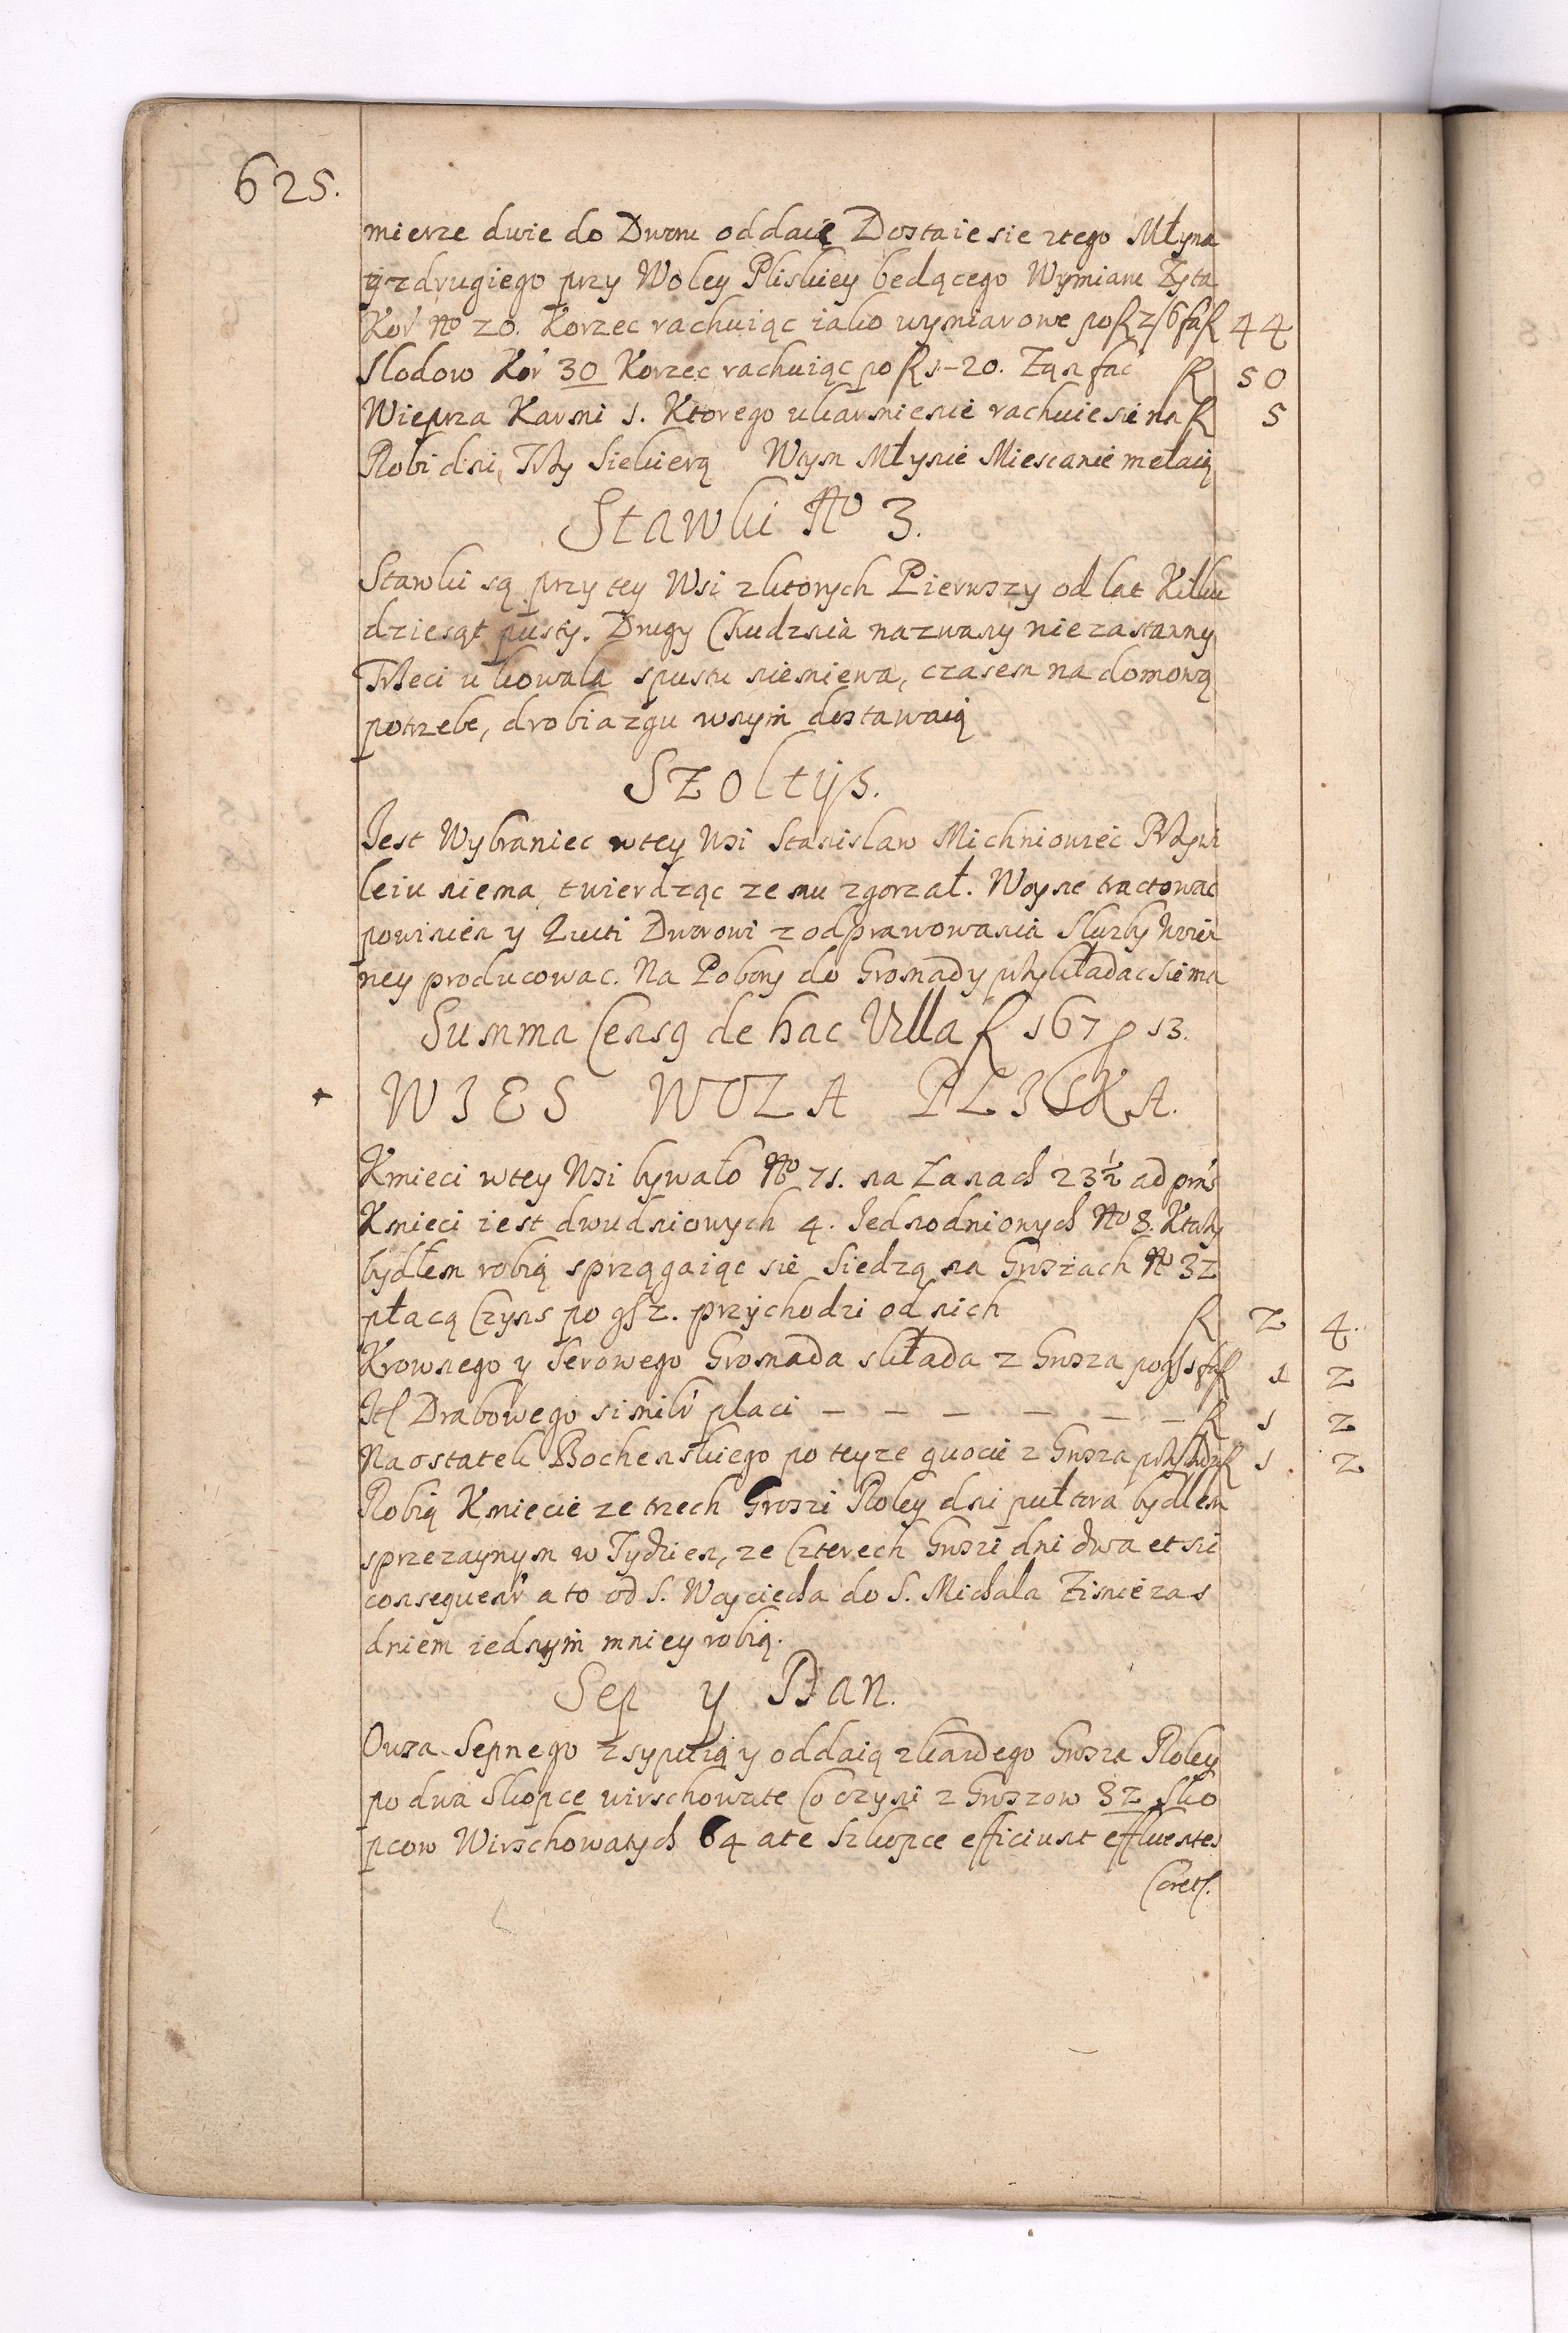 625.
mierze dwie do Dworu oddaie Dostaie sie ztego Młyna
y zdrugiego przy Woley Pliskiey bedącego Wymiaru Zyta
Kor No 20. Korzec rachuiąc iako wymiarowe po f 2/6 fac f 44
Slodow Kor 30 Korzec rachuiąc po f 1-20. Zqn fac f 50
Wieprza Karmi 1. Ktorego ukarmienie rachuie sie na f 5
Robi dni Trzy Siekierą Wtym Młynie Miescanie mełaią
Stawki No 3.
Stawki są przy tey Wsi zktorych Pierwszy od lat Kilku
dziesąt pusty. Drugi Chudznia nazwany niezastawny
Trzeci u kowala spustu niemiewa, czasem na domową
potrzebe, drobiazgu wnym dostawaią
Szoltys.
Jest Wybraniec wtey Wsi Stanislaw Michniowiec Przywi
leiu niema, twierdząc ze mu zgorzał. Woyne tractowac
powinien y Quiti Dworowi zodprawowania Sluzby Woien
ney producowac. Na Pobory do Gromady przykładac sie ma
Summa Censq de hac Villa f 167 g 13.
+ WIES WOLA PLISKA.
Kmieci wtey Wsi bywało No 71. na Lanach 23 1/2 ad prns
Kmieci iest dwudniowych 4. Jednodniowych No 8. Ktorzy
bydłem robią sprzągaiąc sie Siedzą na Gruszach No 32
płacą Czyns po gf 2. przychodzi od nich f 2 4.
Krownego y Serowego Gromada składa z Grusza po gf 1 fac f 1 2
Itf Drabowego similr placi — — — — — — f 1 2
Na ostatek Bochenskiego po teyze quocie z Grusza przychodzi f 1. 2
Robią Kmiecie ze trzech Grószi Roley dni pułtora bydlem
sprzezaynym w Tydzien, ze Czterech Gruszi dni dwa et sic
consequenr a to od S. Woyciecha do S. Michala Zimie zas
dniem iednym mniey robią.
Sep y Dan.
Owsa Sepnego zsypuią y oddaią zkazdego Grusza Roley
po dwa Skopce wirschowate Co czyni z Gruszow 32 Sko
pcow Wirschowatych 64 a te Szkopce efficiunt effluentes
Coretf.